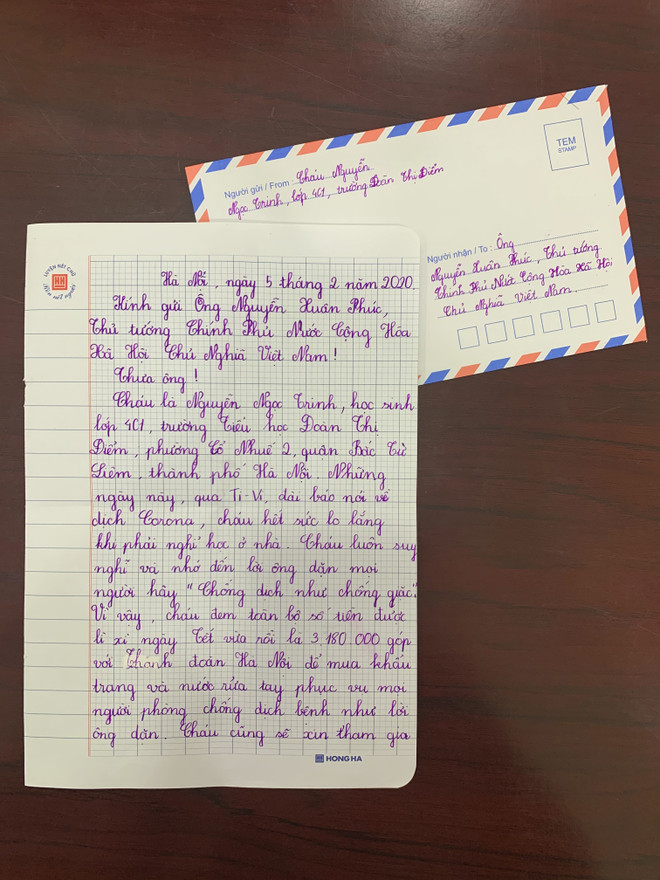 TEM
STAMP
Người gửi / From : Cháu Nguyễn
Ngọc Trinh, lớp 4C1, trường Đoàn Thị Điểm
Người nhận / To : Ông
Nguyễn Xuân Phúc, Thủ tướng
Chính Phủ Nước Cộng Hòa Xã Hội
Chủ Nghĩa Việt Nam.
LUYỆN NÉT CHỮ
RÈN NẾT NGƯỜI
HH
Hà Nội, ngày 5 tháng 2 năm 2020
Kính gửi Ông Nguyễn Xuân Phúc,
Thủ tướng Chính Phủ Nước Cộng Hòa
Xã Hội Chủ Nghĩa Việt Nam !
Thưa ông !
Cháu là Nguyễn Ngọc Trinh, học sinh
lớp 4C1, trường Tiểu học Đoàn Thị
Điểm, phường Cổ Nhuế 2, quận Bắc Từ
Liêm, thành phố Hà Nội. Những
ngày này, qua Ti-Vi, đài báo nói về
dịch Corona, cháu hết sức lo lắng
khi phải nghỉ học ở nhà. Cháu luôn suy
nghĩ và nhớ đến lời ông dặn mọi
người hãy "Chống dịch như chống giặc".
Vì vậy, cháu đem toàn bộ số tiền được
lì xì ngày Tết vừa rồi là 3.180.000 góp
với Thành đoàn Hà Nội để mua khẩu
trang và nước rửa tay phục vụ mọi
người phòng chống dịch bệnh như lời
ông dặn. Cháu cũng sẽ xin tham gia
HH HONG HA